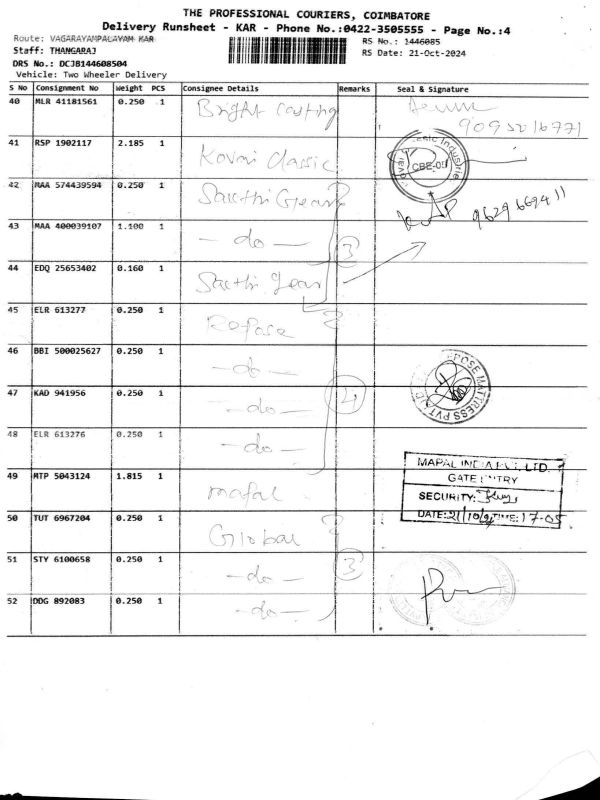 THE PROFESSIONAL COURIERS, COIMBATORE
Delivery Runsheet - KAR - Phone No.:0422-3505555 - Page No.:4
Route: VAGARAYAMPALAYAM KAR
RS No.: 1446085
Staff: THANGARAJ
RS Date: 21-Oct-2024
DRS No.: DCJB144608504
Vehicle: Two Wheeler Delivery
S No Consignment No Weight PCS Consignee Details Remarks Seal & Signature
40 MLR 41181561 0.250 1 Bright Casting
41 RSP 1902117 2.185 1 Kovai Classic CBE-05
42 MAA 574439594 0.250 1 Sakthi Gear 9629669411
43 MAA 400039107 1.100 1 - do - 3
44 EDQ 25653402 0.160 1 Sakthi Gear
45 ELR 613277 0.250 1 Repose
46 BBI 500025627 0.250 1 - do -
47 KAD 941956 0.250 1 - do - 4
48 ELR 613276 0.250 1 - do -
MAPAL INDIA PVT. LTD.
GATE ENTRY
SECURITY:
DATE: 21/10/24 TIME: 17-05
49 MTP 5043124 1.815 1 mapal
50 TUT 6967204 0.250 1 Global
51 STY 6100658 0.250 1 - do - 3
52 DDG 892083 0.250 1 - do -